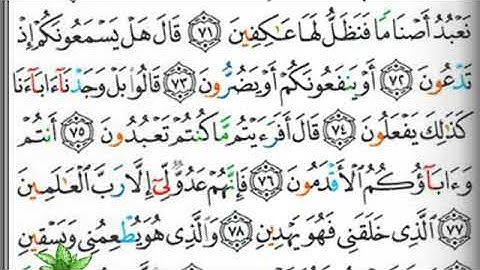 نَعْبُدُ أَصْنَامًا فَنَظَلُّ لَهَا عَٰكِفِينَ ﴿٧١﴾ قَالَ هَلْ يَسْمَعُونَكُمْ إِذْ
تَدْعُونَ ﴿٧٢﴾ أَوْ يَنفَعُونَكُمْ أَوْ يَضُرُّونَ ﴿٧٣﴾ قَالُوا۟ بَلْ وَجَدْنَآ ءَابَآءَنَا
كَذَٰلِكَ يَفْعَلُونَ ﴿٧٤﴾ قَالَ أَفَرَءَيْتُم مَّا كُنتُمْ تَعْبُدُونَ ﴿٧٥﴾ أَنتُمْ
وَءَابَآؤُكُمُ ٱلْأَقْدَمُونَ ﴿٧٦﴾ فَإِنَّهُمْ عَدُوٌّ لِّىٓ إِلَّا رَبَّ ٱلْعَٰلَمِينَ
﴿٧٧﴾ ٱلَّذِى خَلَقَنِى فَهُوَ يَهْدِينِ ﴿٧٨﴾ وَٱلَّذِى هُوَ يُطْعِمُنِى وَيَسْقِينِ